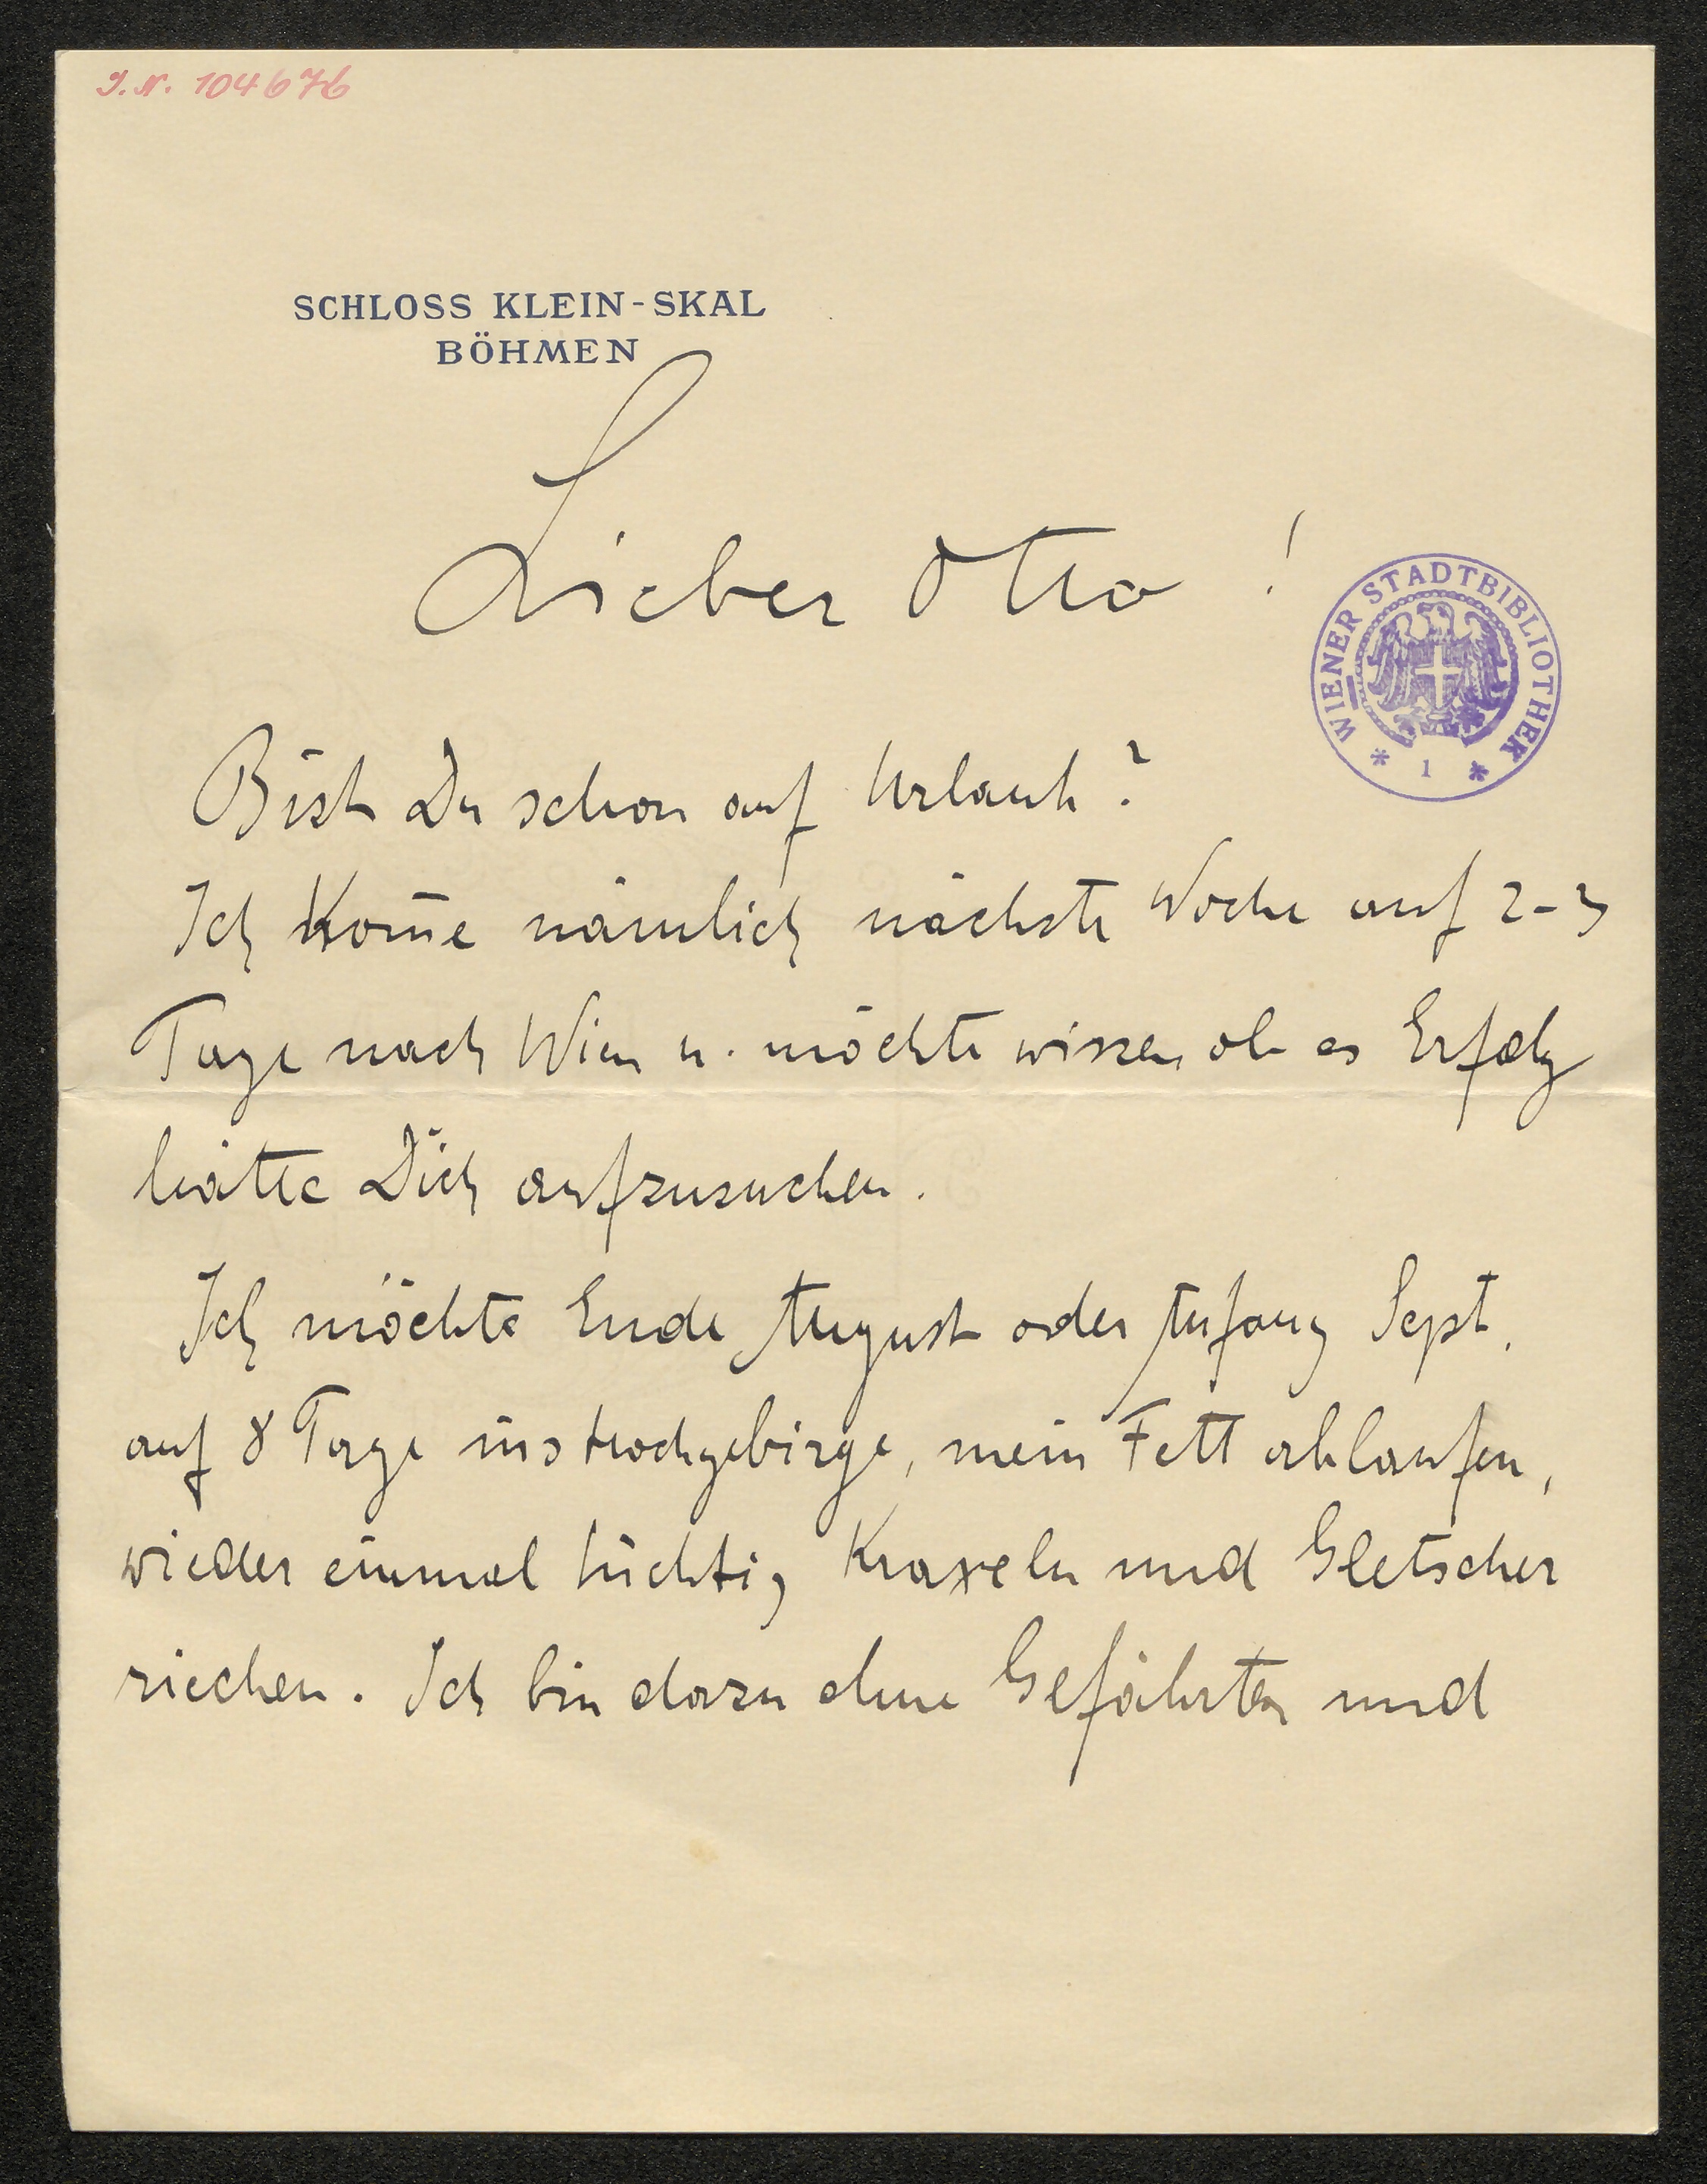 J.N. 104676
SCHLOSS KLEIN-SKAL
BÖHMEN
Lieber Otto !
WIENER STADTBIBLIOTHEK
* 1 *
Bist Du schon auf Urlaub?
Ich kom̄e nämlich nächste Woche auf 2-3
Tage nach Wien u. möchte wissen ob es Erfolg
hätte Dich aufzusuchen.
Ich möchte Ende August oder Anfang Sept.
auf 8 Tage ins Hochgebirge, mein Fett ablaufen,
wieder einmal tüchtig Kraxeln und Gletscher
riechen. Ich bin dazu ohne Gefährten und